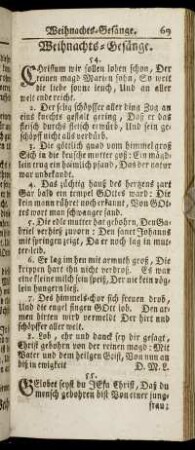 Weihnachts-Gesänge. 69
Weihnachts-Gesänge.
54.
Christum wir sollen loben schon, Der
reinen magd Marien sohn, So weit
die liebe sonne leucht, Und an aller
welt ende reicht.
2. Der selig schöpffer aller ding Zog an
eins knechts gestalt gering, Daß er das
fleisch durch fleisch erwürb, Und sein ge-
schöpff nicht alls verdürb.
3. Die göttlich gnad vom himmel groß
Sich in die keusche mutter goß: Ein mägd-
lein trug ein heimlich pfand, Das der natur
war unbekandt.
4. Das züchtig hauß des hertzens zart
Gar bald ein tempel GOttes ward: Die
kein mann rühret noch erkant, Von GOt-
tes wort man schwanger fand.
5. Die edle mutter hat gebohrn, Den Ga-
briel verhieß zuvorn: Den sanct Johanns
mit springen zeigt, Da er noch lag in mut-
terleib.
6. Er lag im heu mit armuth groß, Die
krippen hart ihn nicht verdroß. Es war
eine kleine milch sein speiß, Der nie kein vög-
lein hungern ließ.
7. Des himmels-chor sich freuen drob,
Und die engel singen GOtt lob. Den ar-
men hirten wird vermeldt Der hirt und
schöpffer aller welt.
8. Lob, ehr und danck sey dir gesagt,
Christ gebohrn von der reinen magd: Mit
Vater und dem heilgen Geist, Von nun an
biß in ewigkeit D. M. L.
55.
GElobet seyst du JEsu Christ, Daß du
mensch gebohren bist Von einer jung-
frau;